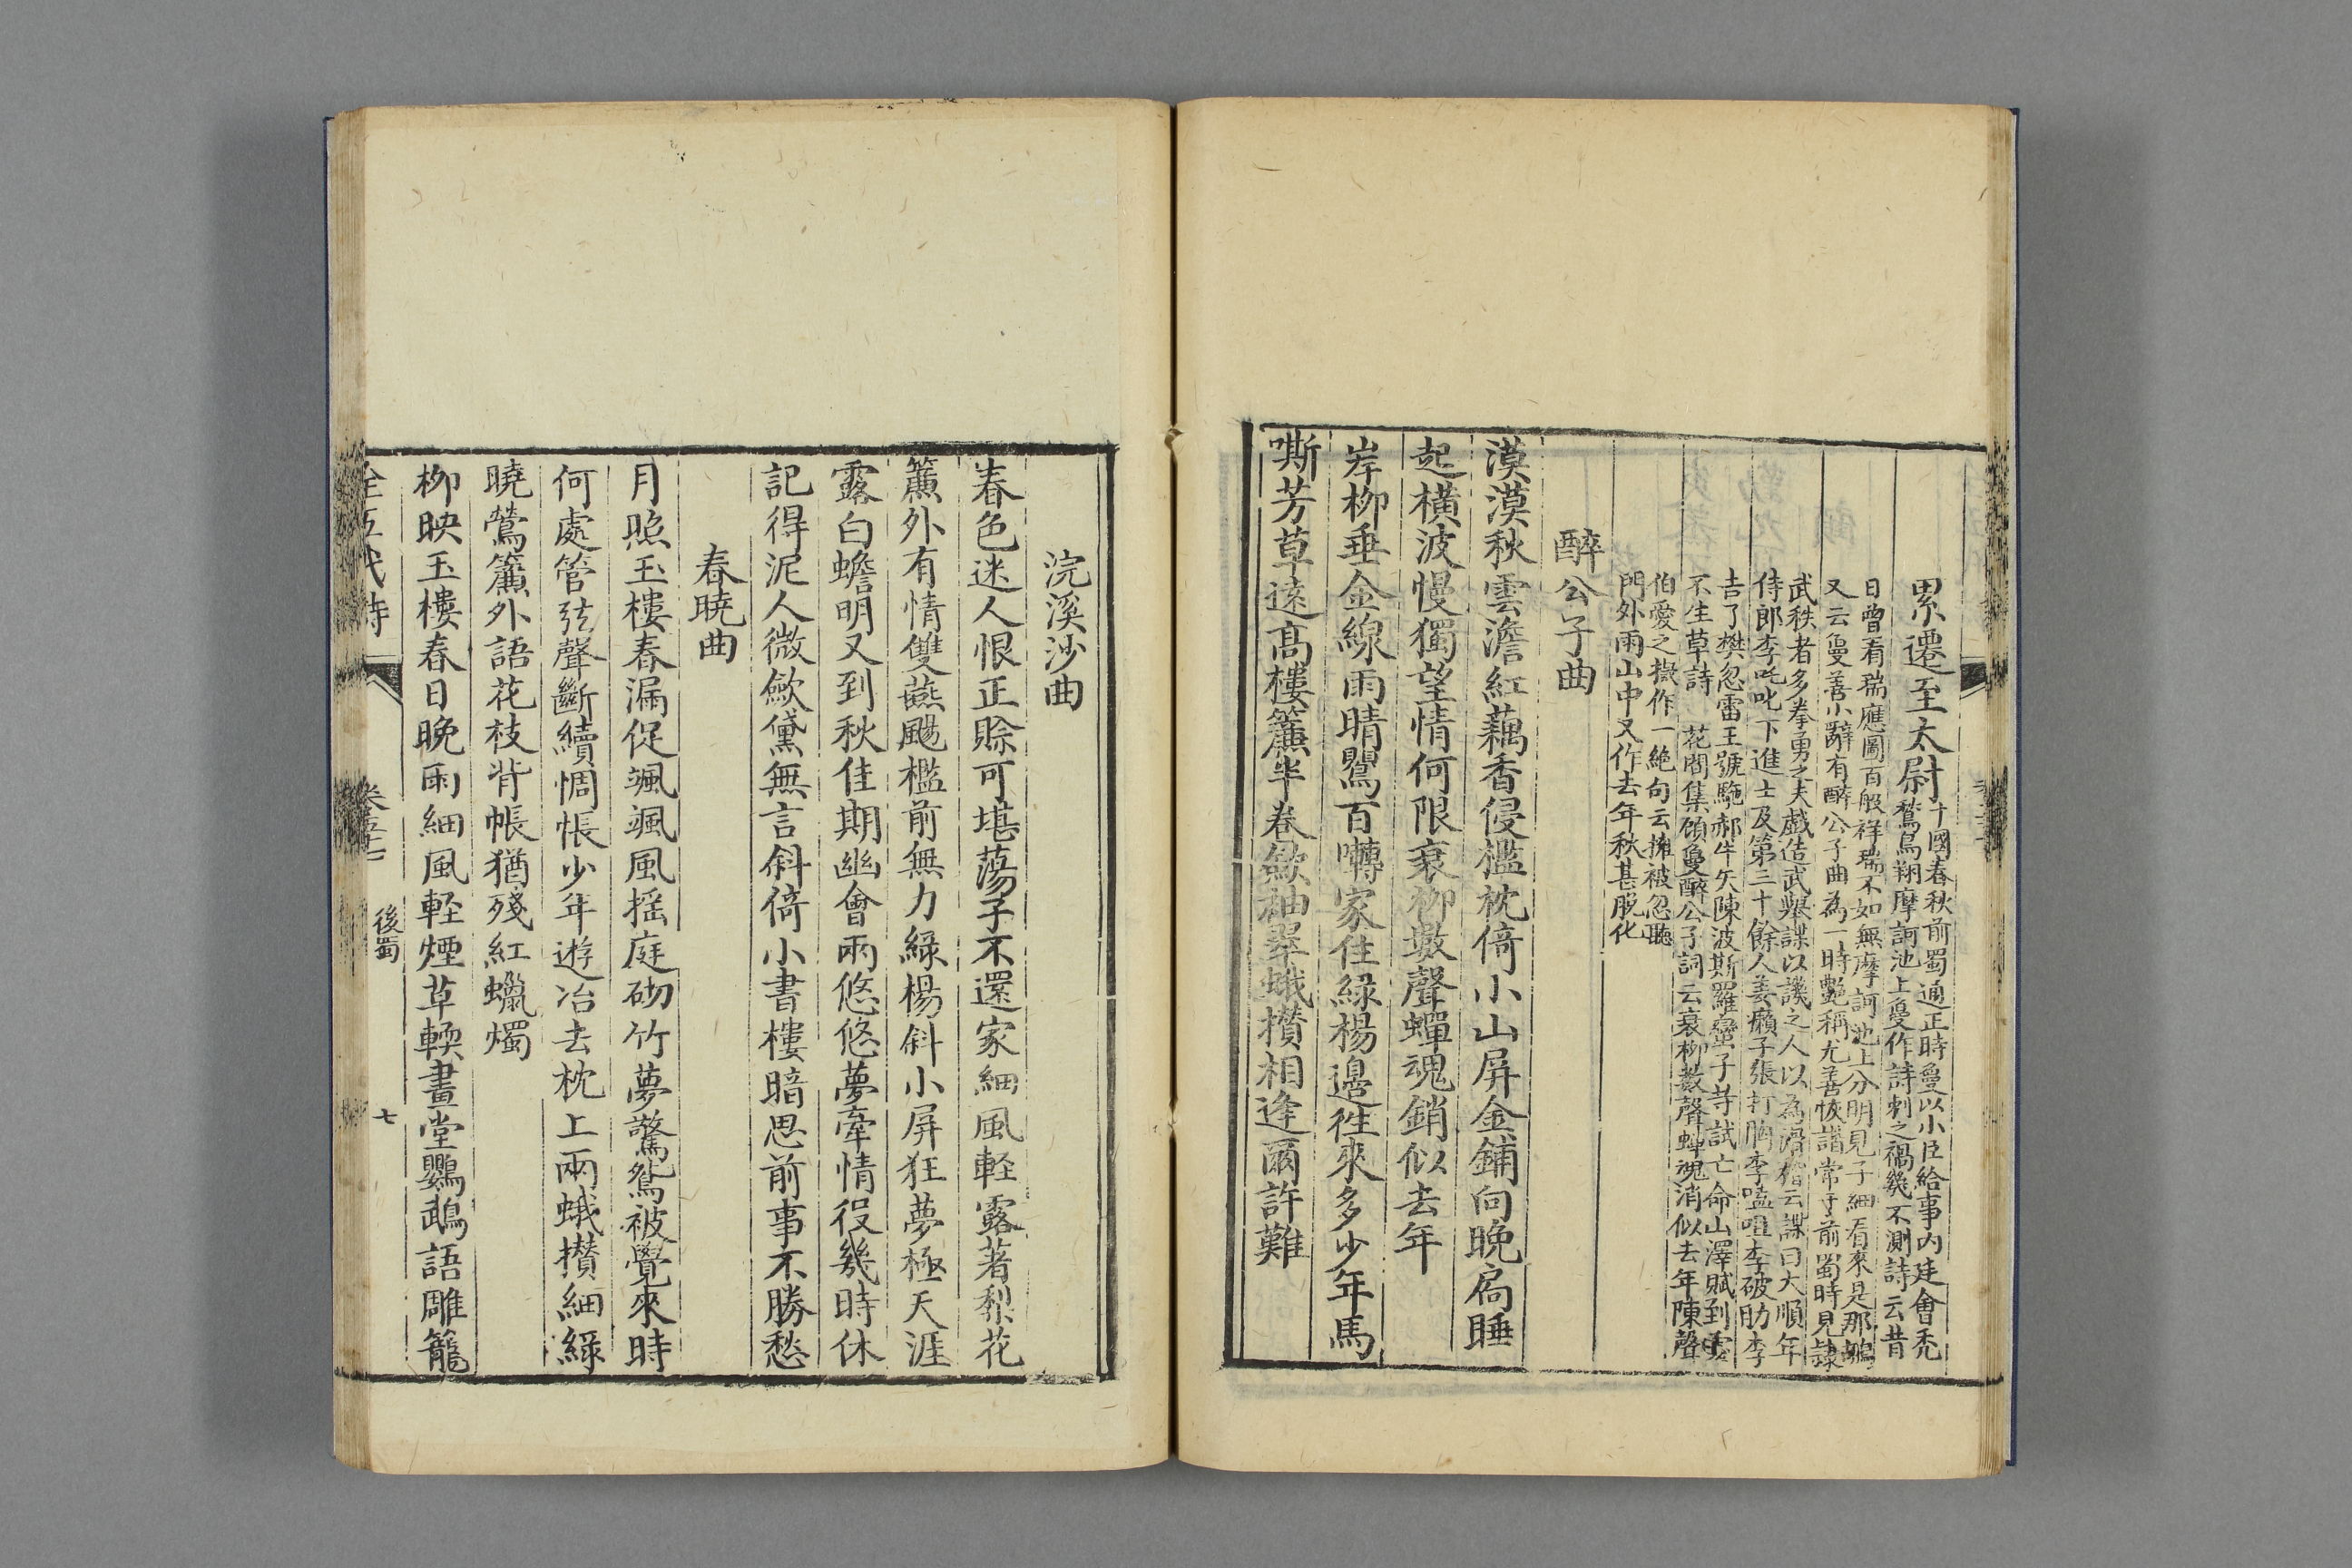 累遷至太尉
十國春秋前蜀通正時敻以小臣給事内廷會禿
鶖鳥翔摩訶池上敻作詩刺之禍幾不測詩云昔
日曾看瑞應圖百般祥瑞不如無摩訶池上分明見子細看來是那鵏
又云敻善小辭有醉公子曲為一時艷稱尤善恢諧常于前蜀時見隷
武秩者多拳勇之夫戲造武舉諜以譏之人以為滑稽云諜曰大順年
侍郎李吒叱下進士及第三十餘人姜癩子張打胸李嗑咀李破肋李
吉了樊忽雷王號駞郝牛矢陳波斯羅蠻子等試亡命山澤賦到處
不生草詩 花間集顧敻醉公子詞云衰柳數聲蟬魂消似去年陳聲
伯愛之擬作一絶句云擁被忽聽
門外雨山中又作去年秋甚脫化
醉公子曲
漠漠秋雲澹紅藕香侵檻枕倚小山屏金鋪向晚扃睡
起横波慢獨望情何限衰柳數聲蟬魂銷似去年
岸柳垂金線雨晴鸎百囀家住綠楊邉徃來多少年馬
嘶芳草遠高樓簾半卷歛袖翠蛾攅相逢爾許難
浣溪沙曲
春色迷人恨正賒可堪蕩子不還家細風軽露著梨花
簾外有情雙燕颺檻前無力綠楊斜小屏狂夢極天涯
露白蟾明又到秋佳期幽會兩悠悠夢牽情役幾時休
記得泥人微歛黛無言斜倚小書樓暗思前事不勝愁
春曉曲
月照玉樓春漏促颯颯風摇庭砌竹夢驚鴛被覺來時
何處管弦聲斷續惆悵少年遊冶去枕上兩蛾攅細綠
曉鶯簾外語花枝背帳猶殘紅蠟燭
柳映玉樓春日晚雨細風軽煙草輭畫堂鸚鵡語雕籠
全五代詩 卷五十 後蜀 七